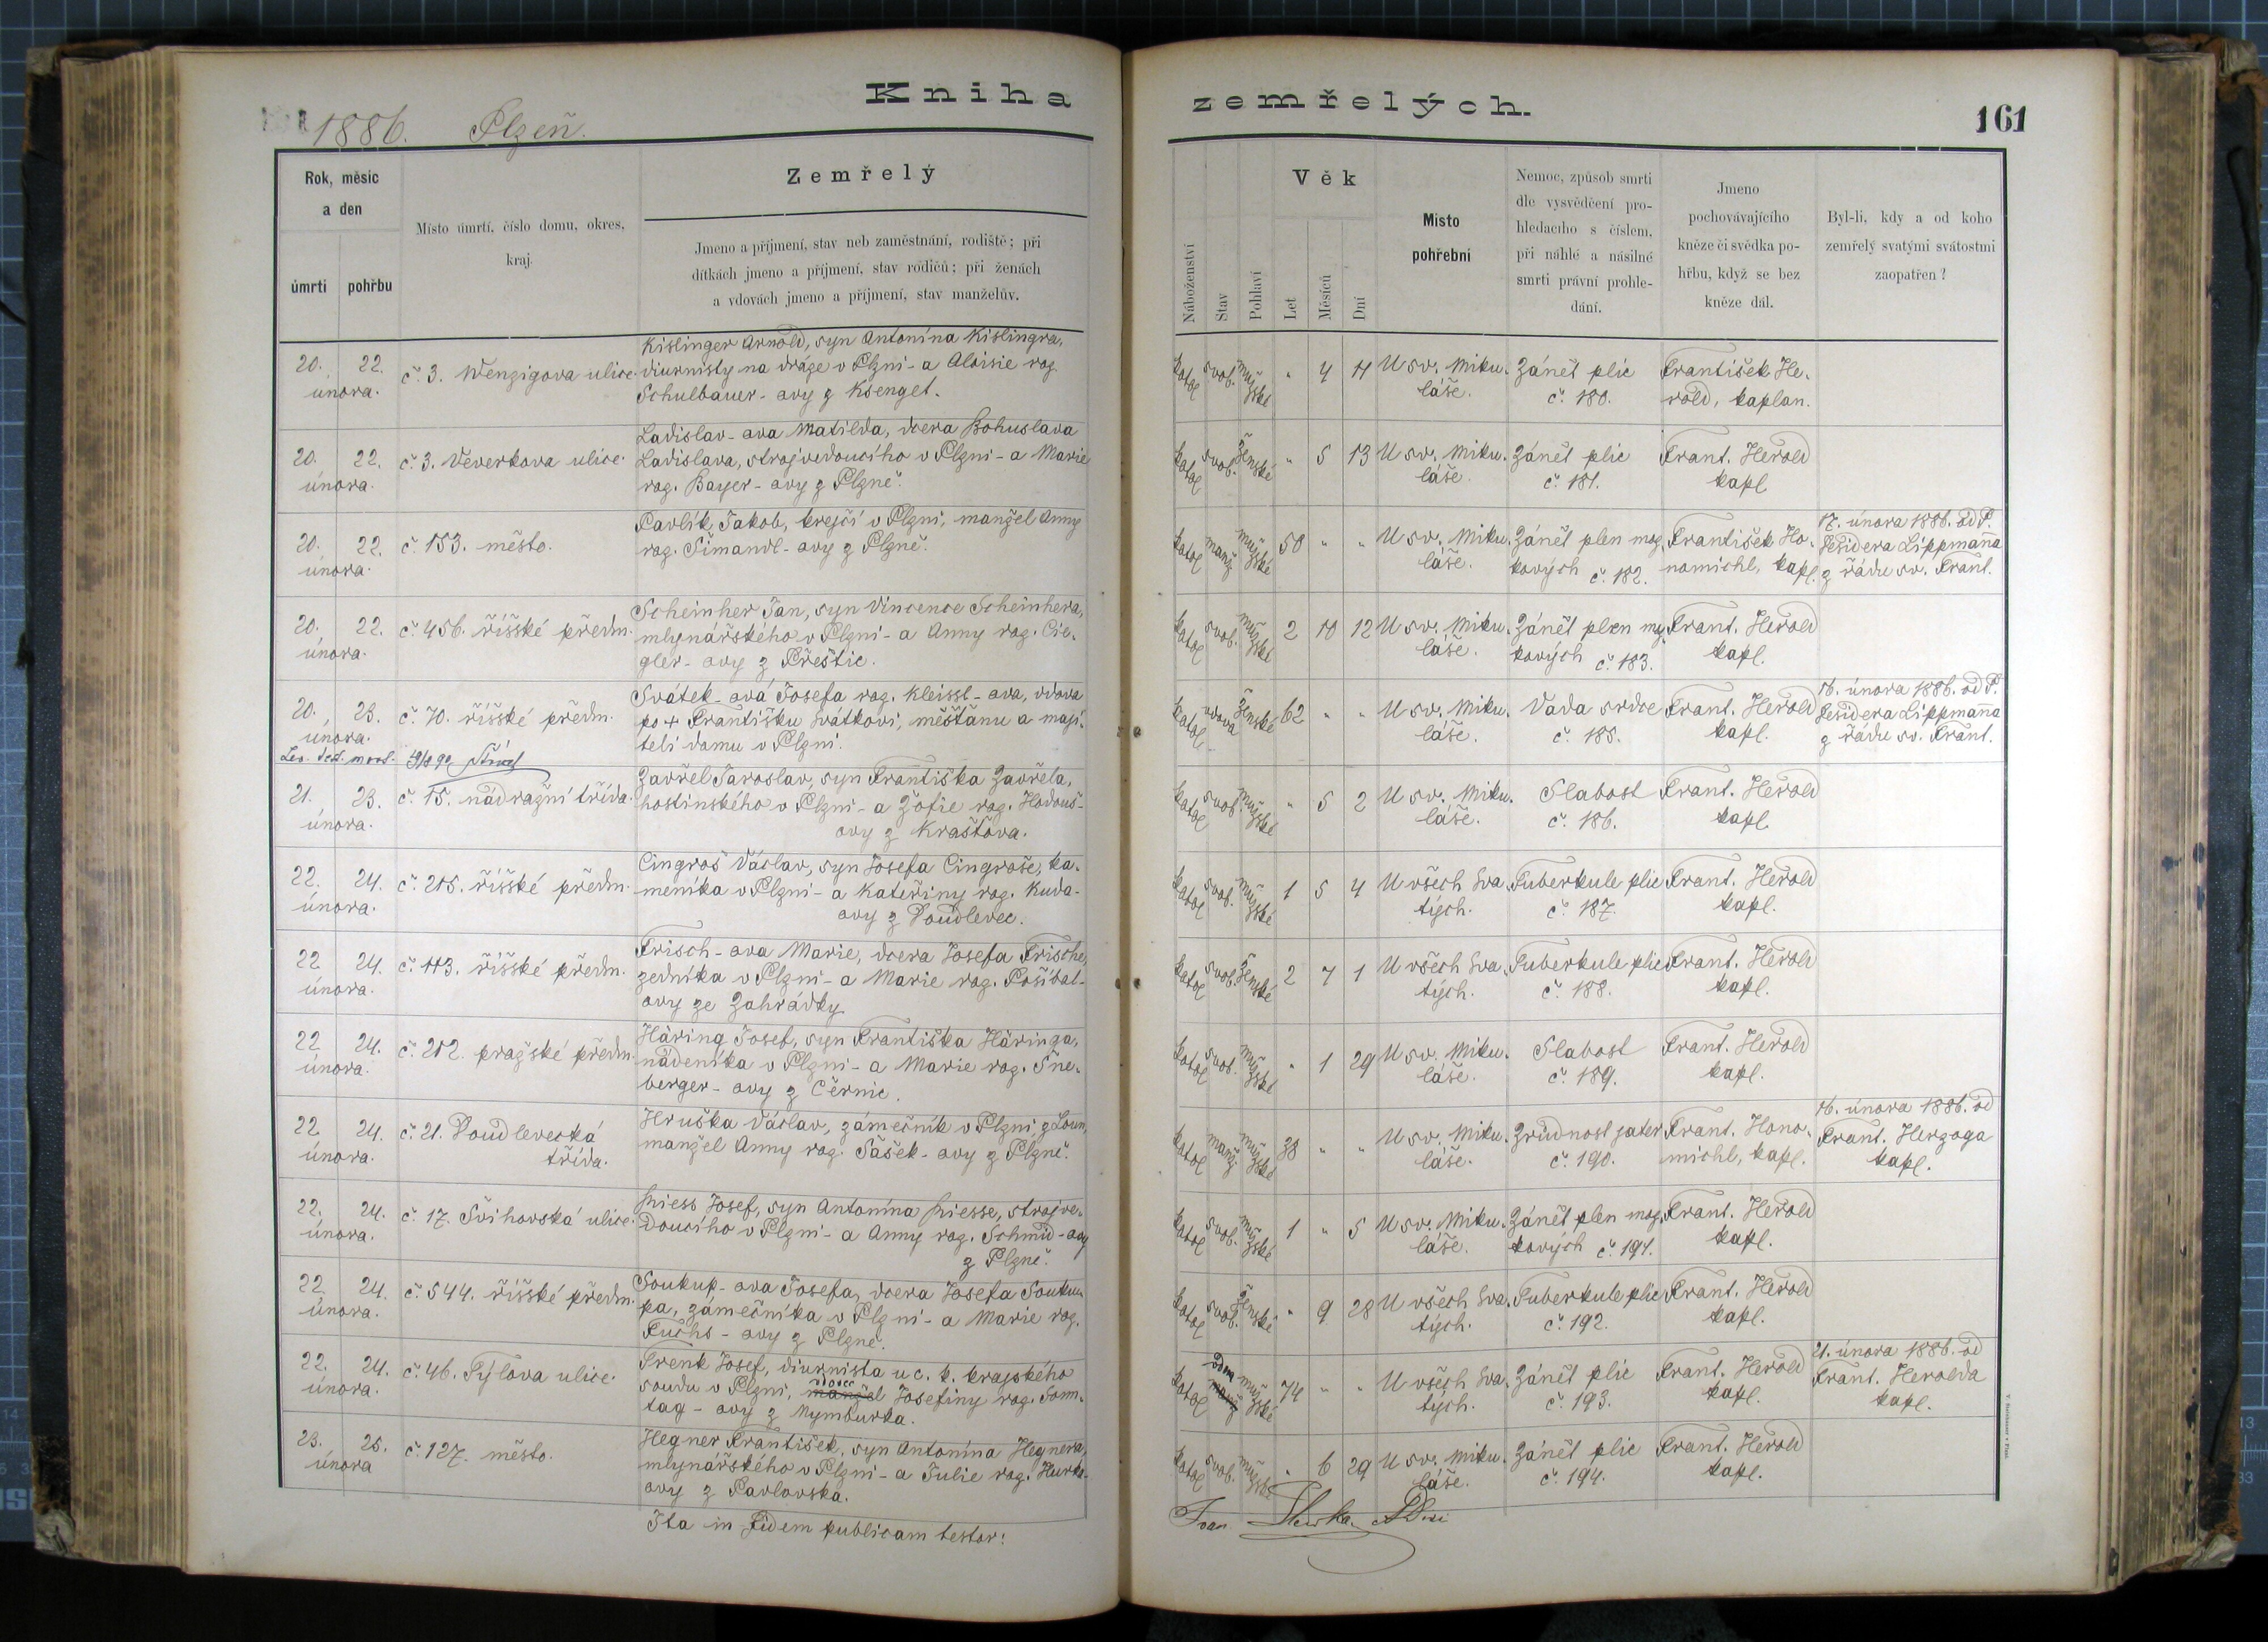 Kniha
zemřelých.
161
1886. Plzeň.
Rok, měsic
a den
úmrtí
pohřbu
Místo úmrtí, číslo domu, okres,
kraj.
Zemřelý
Jmeno a příjmení, stav neb zaměstnání, rodiště; při
dítkách jmeno a příjmení, stav rodičů; při ženách
a vdovách jmeno a příjmení, stav manželův.
Náboženství
Stav
Pohlaví
Věk
Let
Měsíců
Dní
Místo
pohřební
Nemoc, způsob smrti
dle vysvědčení pro-
hledacího s číslem,
při náhlé a násilné
smrti právní prohle-
dání.
Jmeno
pochovávajícího
kněze či svědka po-
hřbu, když se bez
kněze dál.
Byl-li, kdy a od koho
zemřelý svatými svátostmi
zaopatřen?
20. 22.
února.
č. 3. Wenzigova ulice.
Kislinger Arnold, syn Antonína Kislingra,
diurnisty na dráze v Plzni - a Aloisie roz.
Schulbauer - ovy z Ksenget.
katol svob. mužské " 4 11
U sv. Miku-
láše.
Zánět plic
č. 180.
František He-
rold, kaplan.
20. 22.
února.
č. 3. Veverkova ulice.
Ladislav - ova Matilda, dcera Bohuslava
Ladislava, strojvedoucího v Plzni - a Marie
roz. Bayer - ovy z Plzně.
katol svob. ženské " 5 13
U sv. Miku-
láše.
Zánět plic
č. 181.
Frant. Herold
kapl.
20. 22.
února.
č. 153. město.
Pavlík Jakob, krejčí v Plzni, manžel Anny
roz. Šimandl - ovy z Plzně.
katol manž mužské 50 " "
U sv. Miku-
láše.
Zánět plen moz-
kových č. 182.
František Ho-
nomichl, kapl.
17. února 1886. od P.
Desidera Lippmanna
z řádu sv. Frant.
20. 22.
února.
č. 456. říšské předm.
Scheinher Jan, syn Vincence Scheinhera,
mlynářského v Plzni - a Anny roz. Cie-
gler - ovy z Přeštic.
katol svob. mužské 2 10 12
U sv. Miku-
láše.
Zánět plen moz-
kových č. 183.
Frant. Herold
kapl.
20. 23.
února.
č. 70. říšské předm.
Svátek - ová Josefa roz. Kleissl - ova, vdova
po + Františku Svátkovi, měšťanu a maji-
teli domu v Plzni.
katol vdova ženské 62 " "
U sv. Miku-
láše.
Vada srdce
č. 185.
Frant. Herold
kapl.
16. února 1886. od P.
Desidera Lippmanna
z řádu sv. Frant.
21. 23.
února.
č. 15. nádražní třída.
Zavřel Jaroslav, syn Františka Zavřela,
hostinského v Plzni - a Žofie roz. Hodouš-
ovy z Kraštova.
katol svob. mužské " 5 2
U sv. Miku-
láše.
Slabost
č. 186.
Frant. Herold
kapl.
22. 24.
února.
č. 215. říšské předm.
Cingroš Václav, syn Josefa Cingroše, ka-
meníka v Plzni - a Kateřiny roz. Kuda-
ovy z Doudlevec.
katol svob. mužské 1 5 4
U všech Sva-
tých.
Tuberkule plic
č. 187.
Frant. Herold
kapl.
22 24.
února.
č. 113. říšské předm.
Frisch - ova Marie, dcera Josefa Frische,
zedníka v Plzni - a Marie roz. Pošibal-
ovy ze Zahrádky
katol svob. ženské 2 7 1
U všech Sva-
tých.
Tuberkule plic
č. 188.
Frant. Herold
kapl.
22 24.
února.
č. 212. pražské předm.
Häring Josef, syn Františka Häringa,
nádeníka v Plzni - a Marie roz. Šne-
berger - ovy z Černic.
katol svob. mužské " 1 29
U sv. Miku-
láše.
Slabost
č. 189.
Frant. Herold
kapl.
22 24.
února.
č. 21. Doudlevecká
třída.
Hruška Václav, zámečník v Plzni z Loun,
manžel Anny roz. Šašek - ovy z Plzně.
katol manž mužské 38 " "
U sv. Miku-
láše.
Zrudnost jater
č. 190.
Frant. Hono-
michl, kapl.
16. února 1886. od
Frant. Herzoga
kapl.
22. 24.
února.
č. 17. Švihovská ulice.
Miess Josef, syn Antonína Miesse, strojve-
doucího v Plzni - a Anny roz. Schmid - ovy
z Plzně.
katol svob. mužské 1 " 5
U sv. Miku-
láše.
Zánět plen moz-
kových č. 191.
Frant. Herold
kapl.
22 24.
února.
č. 544. říšské předm.
Soukup - ova Josefa, dcera Josefa Souku-
pa, zámečníka v Plzni - a Marie roz.
Fuchs - ovy z Plzně.
katol svob. ženské " 9 28
U všech Sva-
tých.
Tuberkule plic
č. 192.
Frant. Herold
kapl.
22. 24.
února.
č. 46. Tylova ulice.
Trenk Josef, diurnista u c. k. krajského
soudu v Plzni, manžel vdovec Josefiny roz. Sonn-
tag - ovy z Nymburka.
katol manž vdov mužské 74 " "
U všech Sva-
tých.
Zánět plic
č. 193.
Frant. Herold
kapl.
21. února 1886. od
Frant. Herolda
kapl.
23. 25.
února
č. 127. město.
Hegner František, syn Antonína Hegnera,
mlynářského v Plzni - a Julie roz. Hurka-
ovy z Pavlovska.
katol svob. mužské " 6 29
U sv. Miku-
láše.
Zánět plic
č. 194.
Frant. Herold
kapl.
Ita in fidem publicam testor: